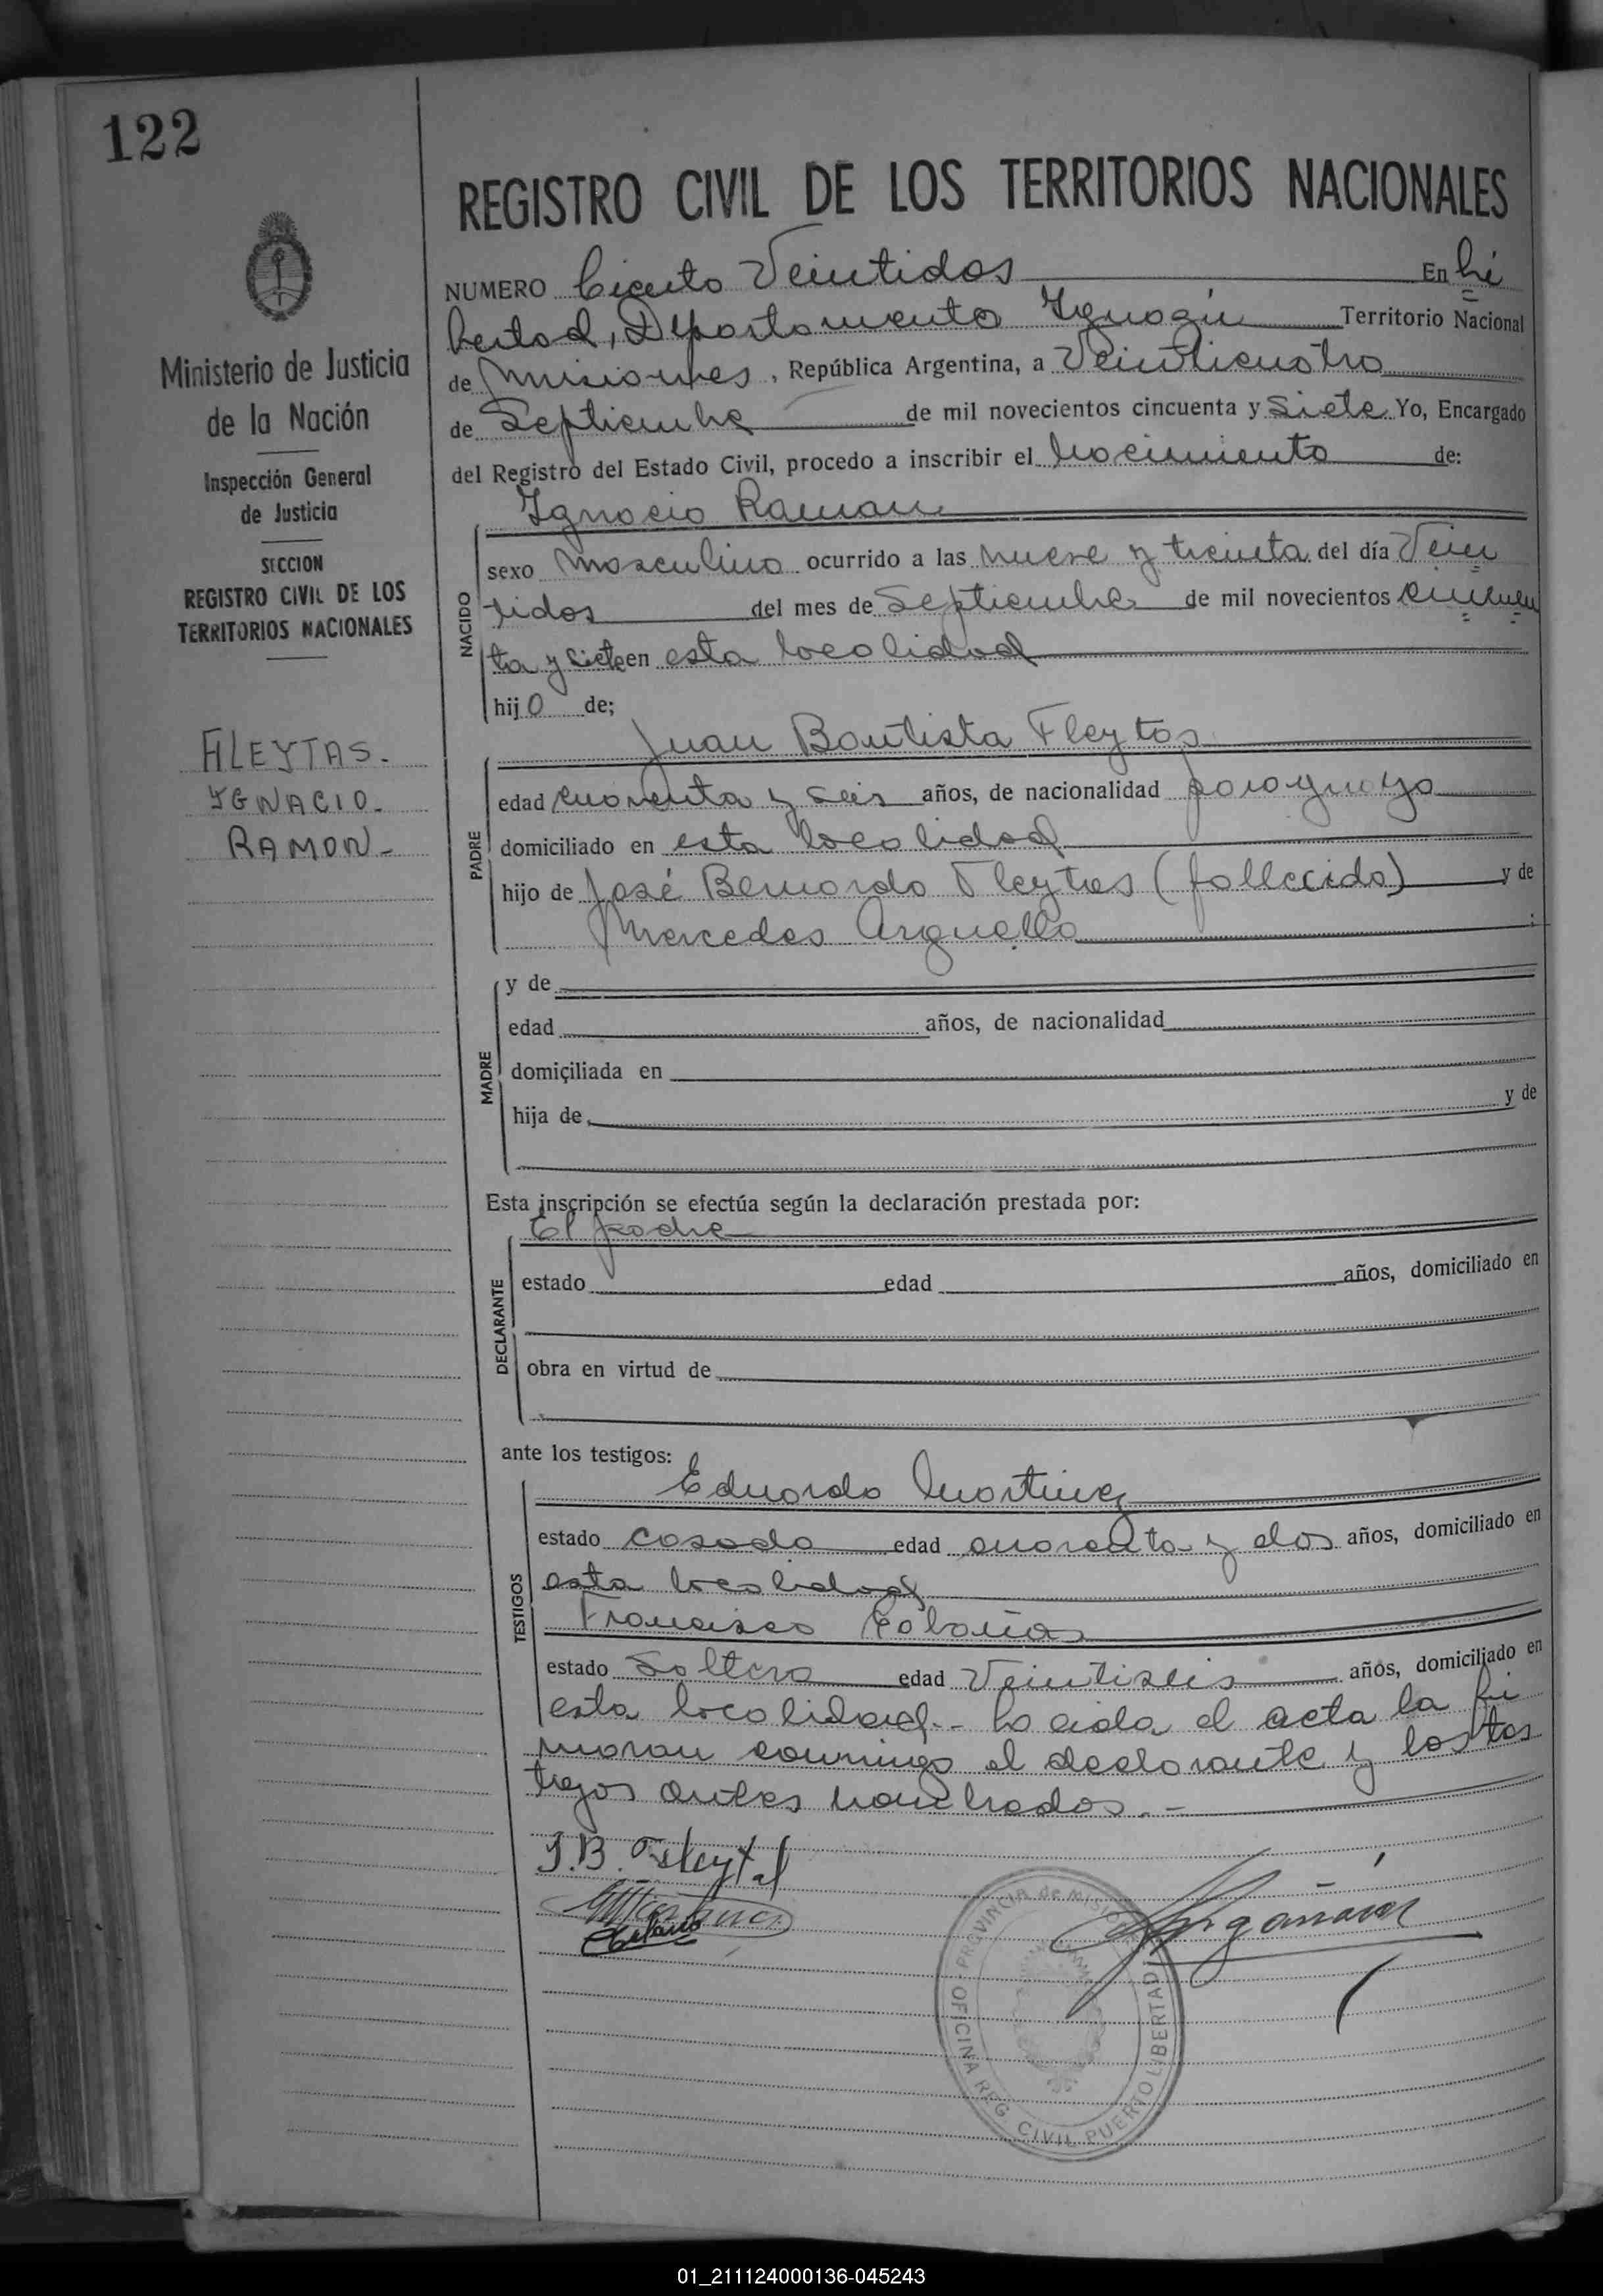 122
REGISTRO CIVIL DE LOS TERRITORIOS NACIONALES
NUMERO Ciento Veintidos En Li
bertad, Departamento Iguazú Territorio Nacional
de Misiones, República Argentina, a Veinticuatro
de Septiembre de mil novecientos cincuenta y Siete Yo, Encargado
del Registro del Estado Civil, procedo a inscribir el Nacimiento de:
Ministerio de Justicia
de la Nación
Inspección General
de Justicia
SECCION
REGISTRO CIVIL DE LOS
TERRITORIOS NACIONALES
FLEYTAS.
YGNACIO.
RAMON-
NACIDO
Ygnacio Ramon
sexo Masculino ocurrido a las nueve y treinta del día Vein
tidos del mes de Septiembre de mil novecientos cincuen
ta y siete en esta localidad
hijo de;
PADRE
Juan Bautista Fleytas
edad cuarenta y seis años, de nacionalidad paraguaya
domiciliado en esta localidad
hijo de José Bernardo Fleytas (fallecido) y de
Mercedes Arguello;
MADRE
y de
edad años, de nacionalidad
domiciliada en
hija de y de
Esta inscripción se efectúa según la declaración prestada por:
DECLARANTE
El padre
estado edad años, domiciliado en
obra en virtud de
ante los testigos:
TESTIGOS
Eduardo Martinez
estado casado edad cuarenta y dos años, domiciliado en
esta localidad
Francisco
estado Soltero edad Veintiseis años, domiciliado en
esta localidad.- Leida el acta la fir
maron conmigo el declarante y los tes
tigos antes nombrados.-
J.B. Fleytas
PROVINCIA de MISIONES
OFICINA REG. CIVIL PUERTO LIBERTAD
01_211124000136-045243